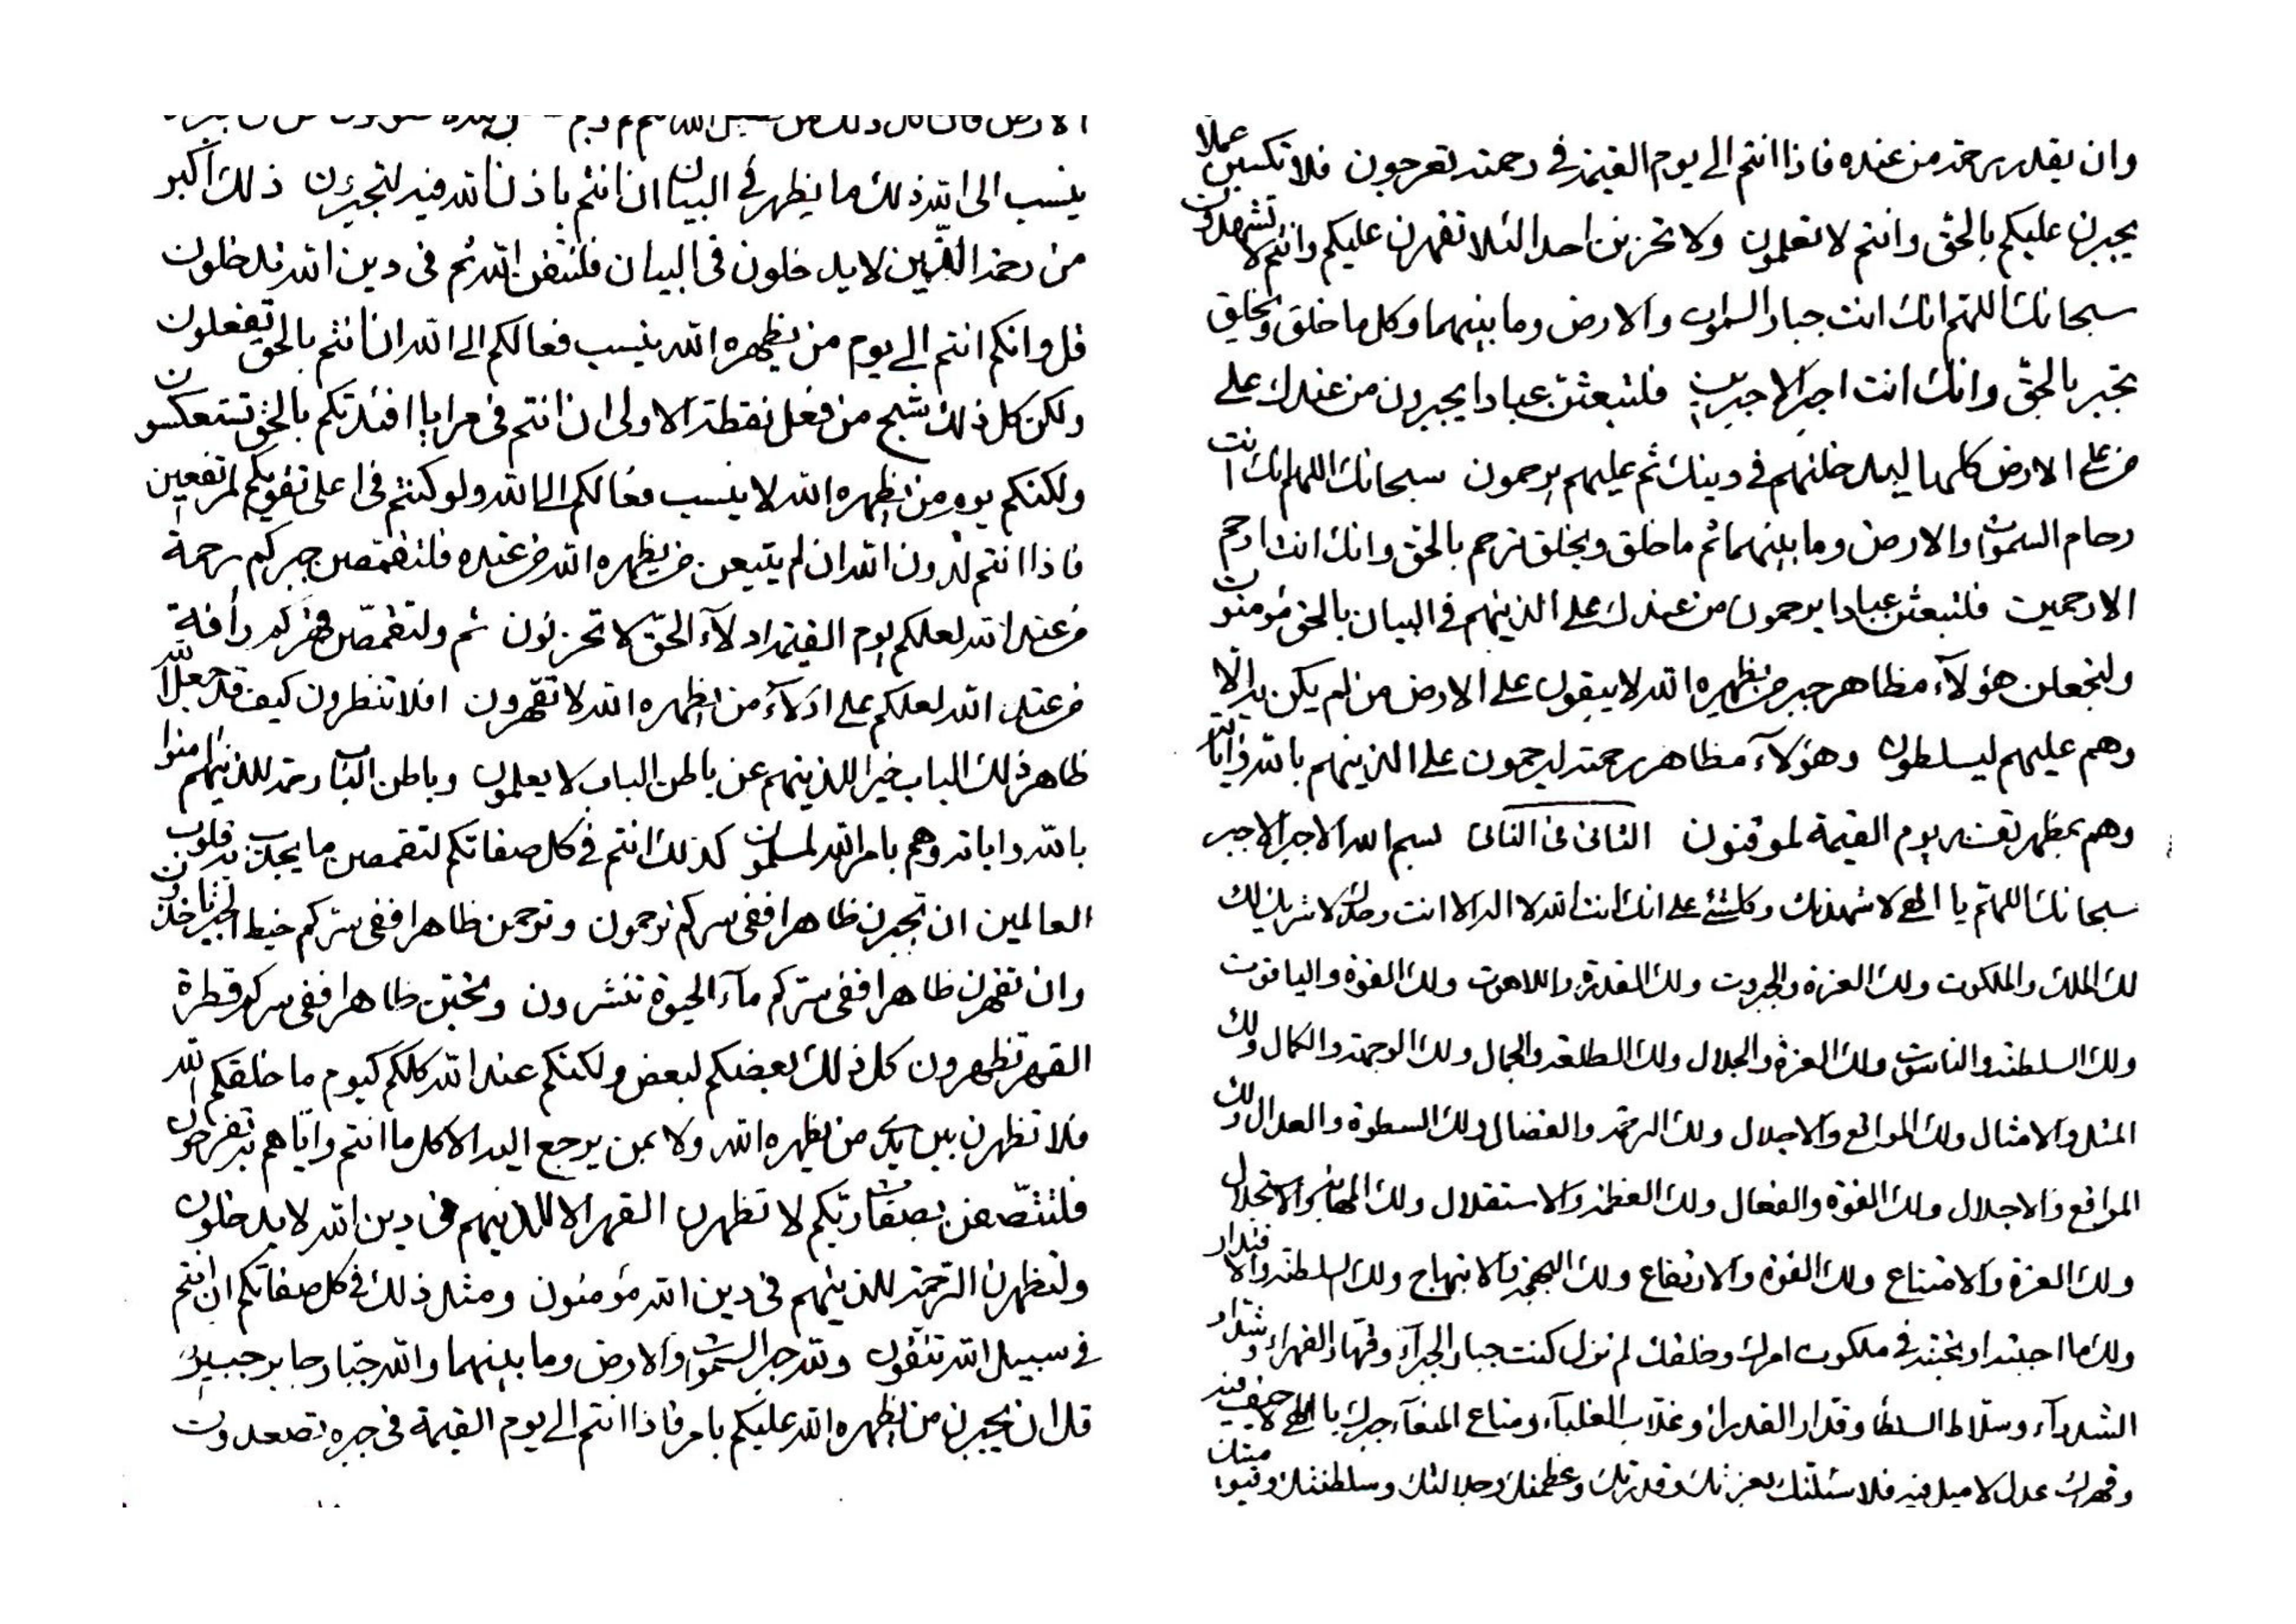 ينسب الى الله ذلك ما يظهر في البيان ان انتم باذن الله فيه لتجبرون ذلك اكبر
من رحمة الذين لا يدخلون في البيان فلتتقن الله ثم في دين الله تدخلون
قل وانكم انتم الى يوم من يظهره الله ينسب فعالكم الى الله ان انتم بالحق تفعلون
ولكن كل ذلك شبح من فعل نقطة الاولى ان انتم في مرايا افئدتكم بالحق تستعكسون
ولكنكم يوم من يظهره الله لا ينسب فعالكم الى الله ولو كنتم في اعلى تقويكم لمرتفعين
فاذا انتم لدون الله ان لم يتبعن من يظهره الله من عنده فلتقمصن جبركم رحمة
من عند الله لعلكم يوم القيمة ادلاء الحق لا تحزنون ثم ولتقمصن قهركم رأفة
من عند الله لعلكم على ادلاء من يظهره الله لا تقهرون افلا تنظرون كيف قد جعل الله
ظاهر ذلك الباب خيرا للذينهم عن باطن الباب لا يعلمون وباطن الباب رحمة للذينهم امنوا
بالله واياته وهم بامر الله لمسلمون كذلك انتم في كل صفاتكم لتقمصن ما يجذبن به قلوب
العالمين ان تجبرن ظاهرا ففي سركم ترحمون وترحمن ظاهرا ففي سركم خيط الجبر تاخذون
وان تقهرن ظاهرا ففي سركم ماء الحيوة تنشرون وتحبن ظاهرا ففي سركم قطرة
القهر تظهرون كل ذلك بعضكم لبعض ولكنكم عند الله كلكم كيوم ما خلقكم الله
فلا تظهرن بين يدي من يظهره الله ولا بمن يرجع اليه الا كل ما انتم واياهم به تفرحون
فلتتصفن بصفات ربكم لا تظهرن القهر الا للذينهم في دين الله لا يدخلون
ولتظهرن الرحمة للذينهم في دين الله مؤمنون ومثل ذلك في كل صفاتكم ان انتم
في سبيل الله تتقون ولله جبر السموات والارض وما بينهما والله جبار جابر جبير
قل ان يجبرن من يظهره الله عليكم بامر فاذا انتم الى يوم القيمة في جبره تصعدون
وان يقدر برحمة من عنده فاذا انتم الى يوم القيمة في رحمته تعرجون فلا تكسبن عملا
يجبرن عليكم بالحق وانتم لا تعلمون ولا تحزنن احدا لئلا تقهرن عليكم وانتم لا تشهدون
سبحانك اللهم انك انت جبار السموات والارض وما بينهما وكل ما خلق ويخلق
تجبر بالحق وانك انت اجبر الاجبرين فلتبعثن عبادا يجبرون من عندك على
من على الارض كلها ليدخلنهم في دينك ثم عليهم يرحمون سبحانك اللهم انك انت
رحام السموات والارض وما بينهما ثم ما خلق ويخلق ترحم بالحق وانك انت ارحم
الارحمين فلتبعثن عبادا يرحمون من عندك على الذينهم في البيان بالحق مؤمنون
ولتجعلن هؤلاء مظاهر جبر من يظهره الله لا يبقون على الارض من لم يكن به الا
وهم عليهم ليسلطون وهؤلاء مظاهر رحمته ليرحمون على الذينهم بالله واياته
وهم بمظهر نفسه يوم القيمة لموقنون الثانى فى الثانى بسم الله الاجبر الاجبر
سبحانك اللهم يا الهي لاشهدنك وكلشئ على انك انت الله لا اله الا انت وحدك لا شريك لك
لك الملك والملكوت ولك العزة والجبروت ولك القدرة واللاهوت ولك القوة والياقوت
ولك السلطنة والناسوت ولك العزة والجلال ولك الطلعة والجمال ولك الوجهة والكمال ولك
المثل والامثال ولك المواقع والاجلال ولك الرحمة والفضال ولك السطوة والعدال ولك
المرافع والاجلال ولك القوة والفعال ولك العظمة والاستقلال ولك المهابة والاستجلال
ولك العزة والامتناع ولك القوة والارتفاع ولك البهجة والابتهاج ولك السلطنة والاقتدار
ولك ما احببته او تحبنه في ملكوت امرك وخلقك لم تزل كنت جبار الجبراء وقهار القهراء وشداد
الشدداء وسلاط السلطاء وقدار القدراء وغلاب الغلباء ومناع المنعاء جبرك يا الهي لا حيف فيه
وقهرك عدل لا ميل فيه فلاسئلنك بعزتك وقدرتك وعظمتك وجلالتك وسلطنتك